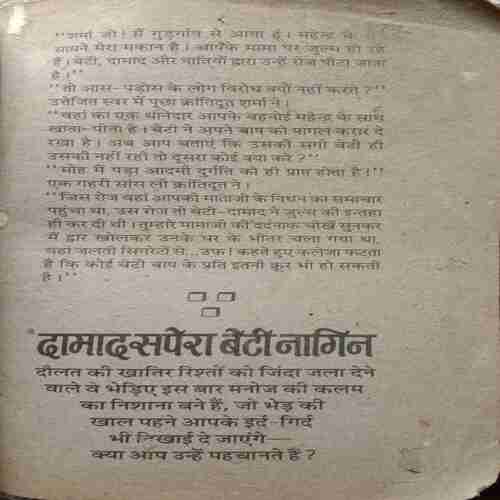 "शर्मा जी! मैं गुड़गांव से आया हूं। महेन्द्र के
सामने मेरा मकान है। आपके मामा पर जुल्म हो रहे
हैं। बेटी, दामाद और नातियों द्वारा उन्हें रोज पीटा जाता
है।"
"तो आस-पड़ोस के लोग विरोध क्यों नहीं करते?"
उत्तेजित स्वर में पूछा क्रांतिदूत शर्मा ने।
"वहां का एक थानेदार आपके बहनोई महेन्द्र के साथ
खाता-पीता है। बेटी ने अपने बाप को पागल करार दे
रखा है। अब आप बताएं कि उसकी सगी बेटी ही
उसकी नहीं रही तो दूसरा कोई क्या करे?"
"मोह में पड़ा आदमी दुर्गति को ही प्राप्त होता है।"
एक गहरी सांस ली क्रांतिदूत ने।
"जिस रोज वहां आपकी माताजी के निधन का समाचार
पहुंचा था, उस रोज तो बेटी-दामाद ने जुल्म की इन्तहा
ही कर दी थी। तुम्हारे मामाजी की दर्दनाक चीखें सुनकर
मैं द्वार खोलकर उनके घर के भीतर चला गया था,
वहां जलती सिगरेटों से...उफ! कहते हुए कलेजा फटता
है कि कोई बेटी बाप के प्रति इतनी क्रूर भी हो सकती
है।"
दामाद सपेरा बेटी नागिन
दौलत की खातिर रिश्तों को जिंदा जला देने
वाले वे भेड़िए इस बार मनोज की कलम
का निशाना बने हैं, जो भेड़ की
खाल पहने आपके इर्द-गिर्द
भी दिखाई दे जाएंगे—
क्या आप उन्हें पहचानते हैं?